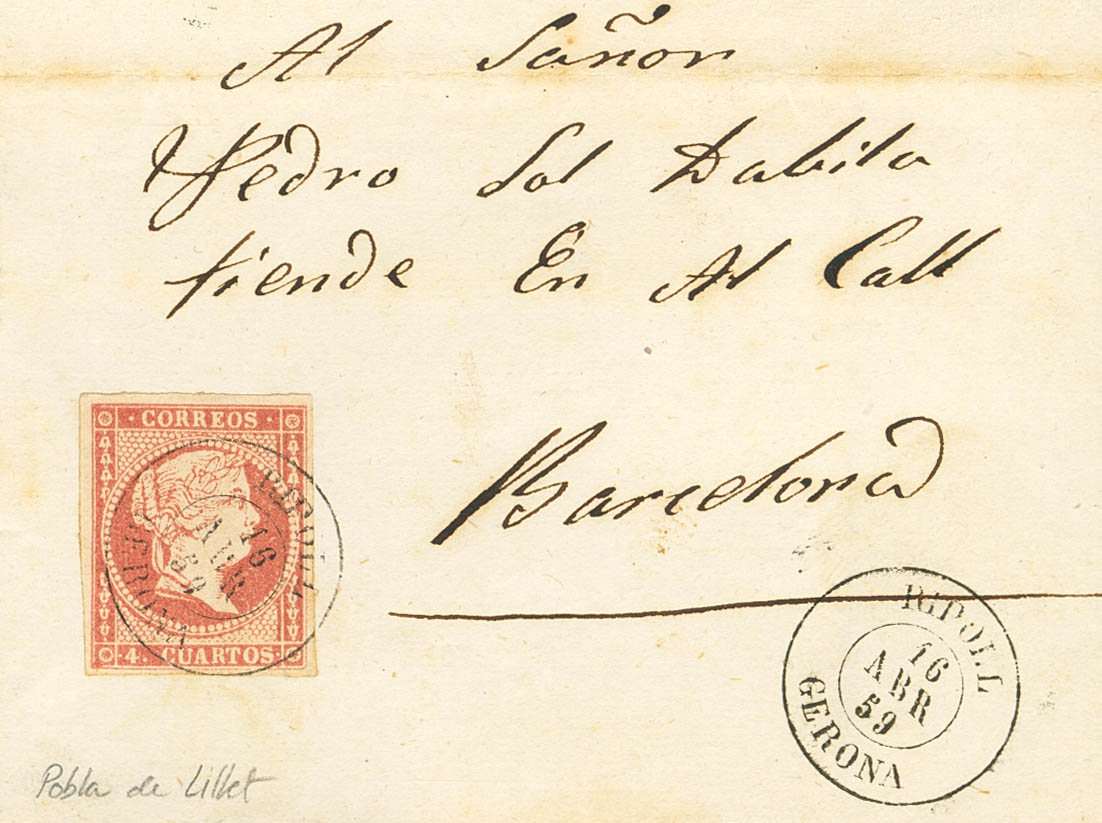 Al Sañor
Pedro Sol Dabila
tiende En Al Call
Barcelona
· CORREOS ·
RIPOLL
16
ABR
59
GERONA
· 4. CUARTOS ·
RIPOLL
16
ABR
59
GERONA
Pobla de Lillet